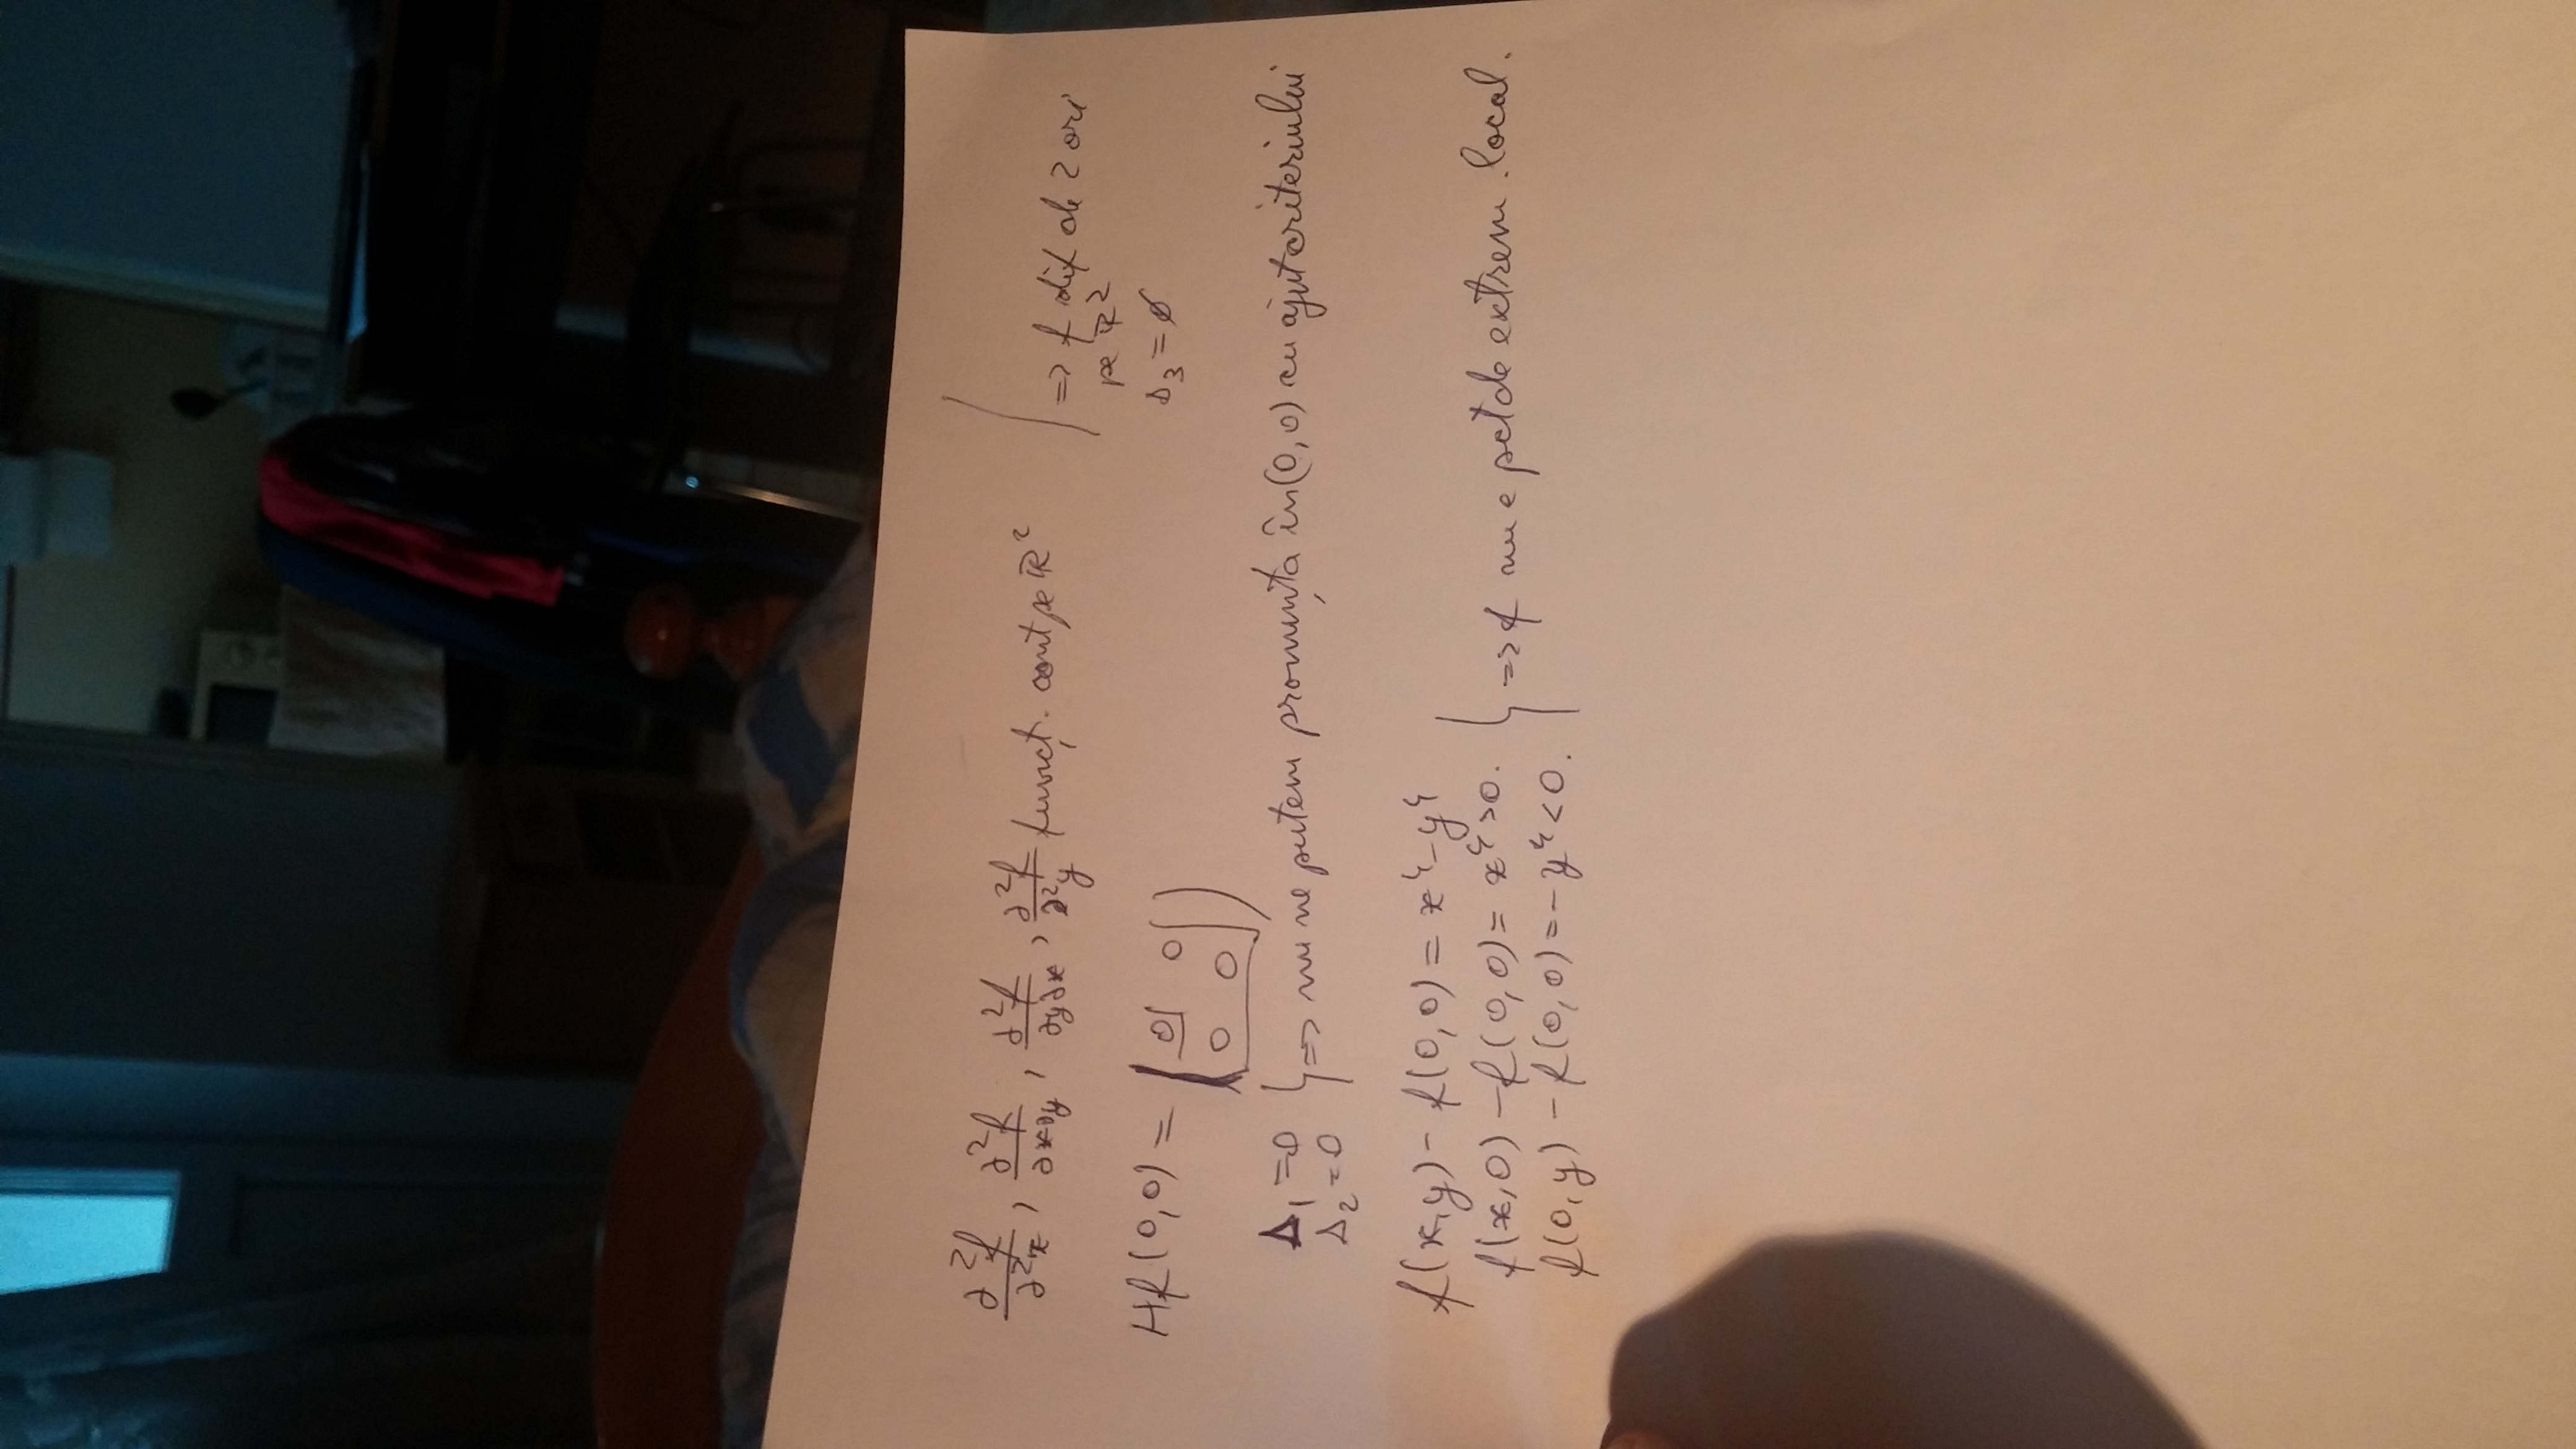 ∂²f/∂²x, ∂²f/∂x∂y, ∂²f/∂y∂x, ∂²f/∂²y funcț. cont pe ℝ² | => f dif de 2 ori
pe ℝ²
Δ₃ = ∅
Hf(0,0) = ( 0 0
0 0 )
Δ₁ = 0
Δ₂ = 0 } => nu ne putem pronunța în (0,0) cu ajut criteriului
f(x,y) - f(0,0) = x⁴ - y⁴
f(x,0) - f(0,0) = x⁴ > 0.
f(0,y) - f(0,0) = - y⁴ < 0. } => f nu e pct de extrem local.